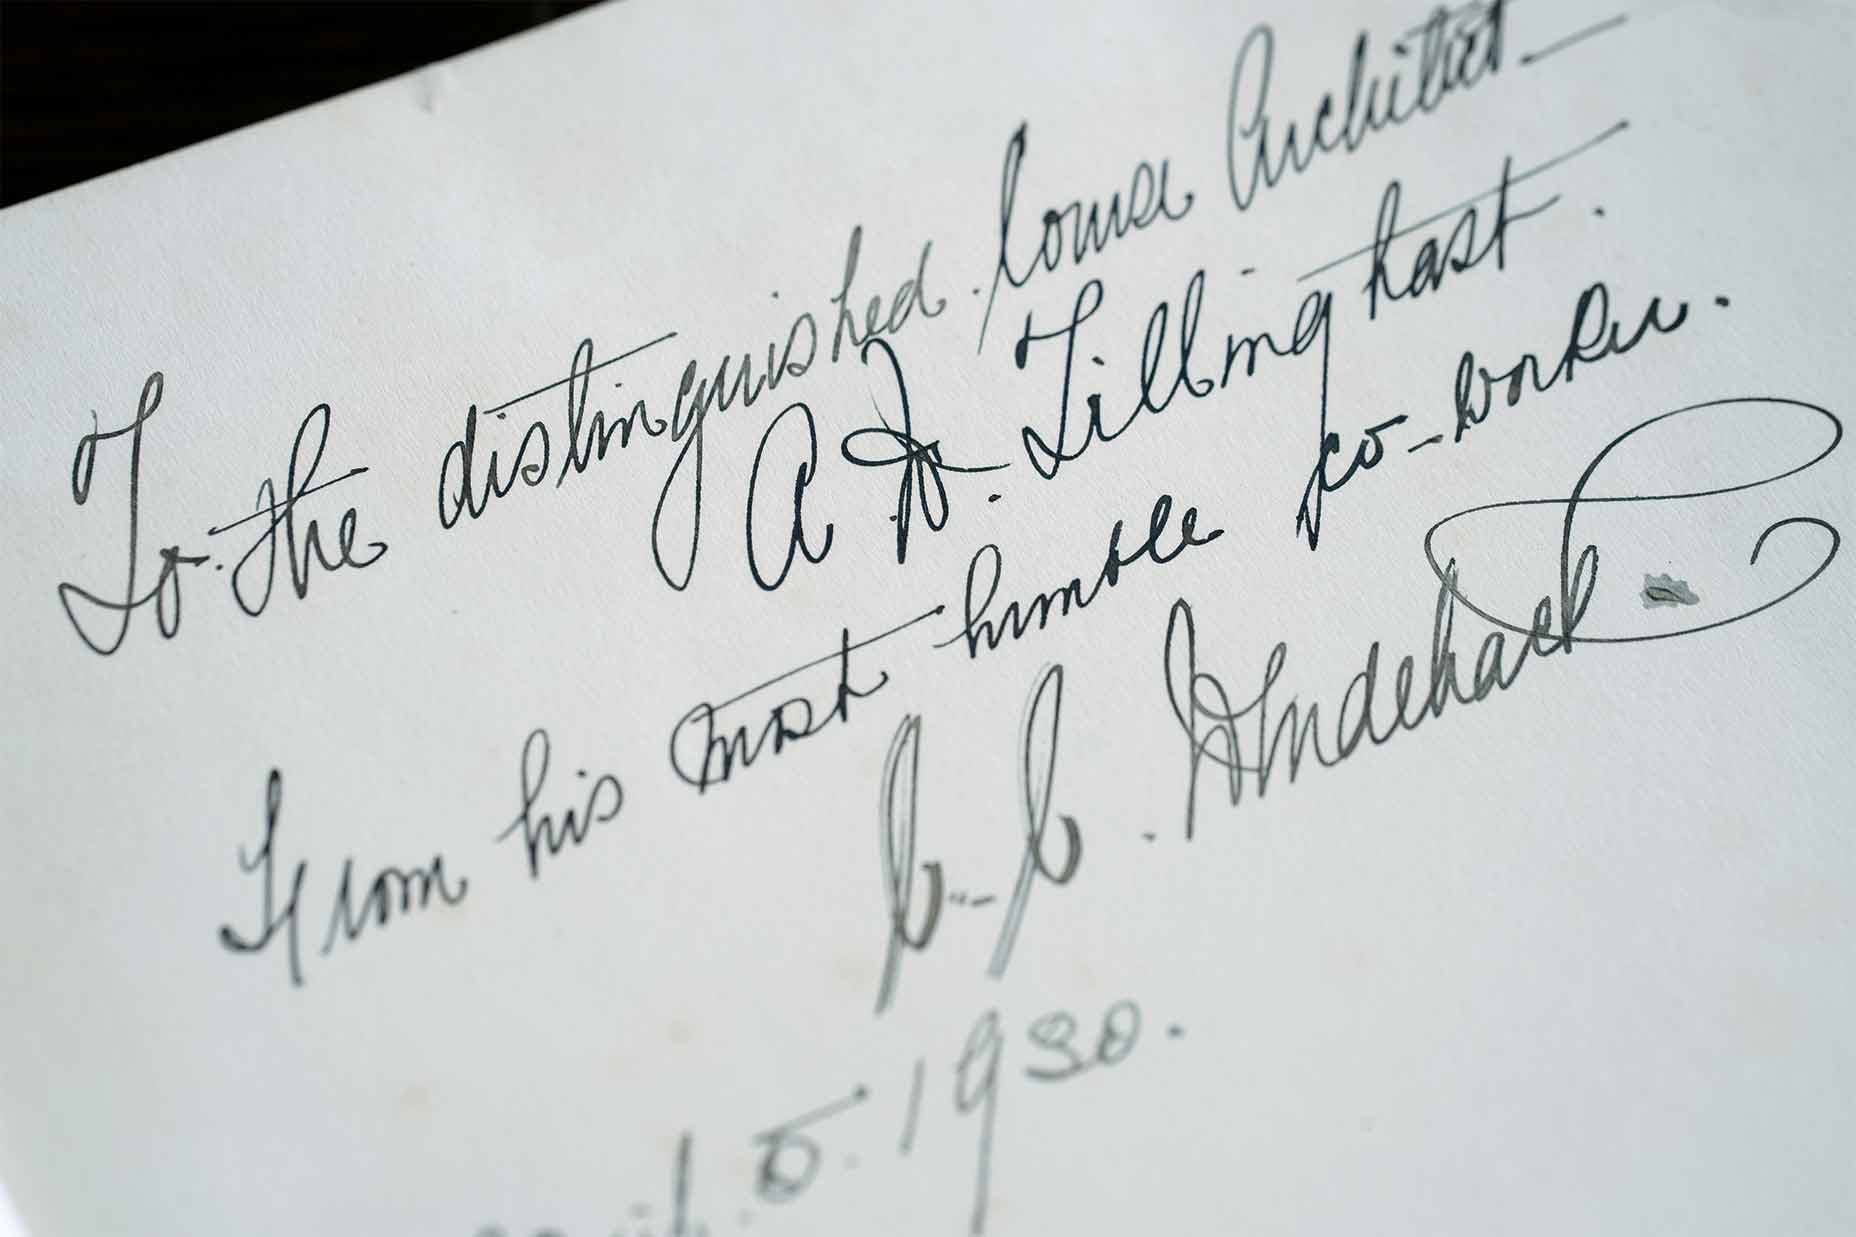 To the distinguished Course Architect
A. W. Tillinghast.
From his most humble co-worker.
C. C.
5. 1930.